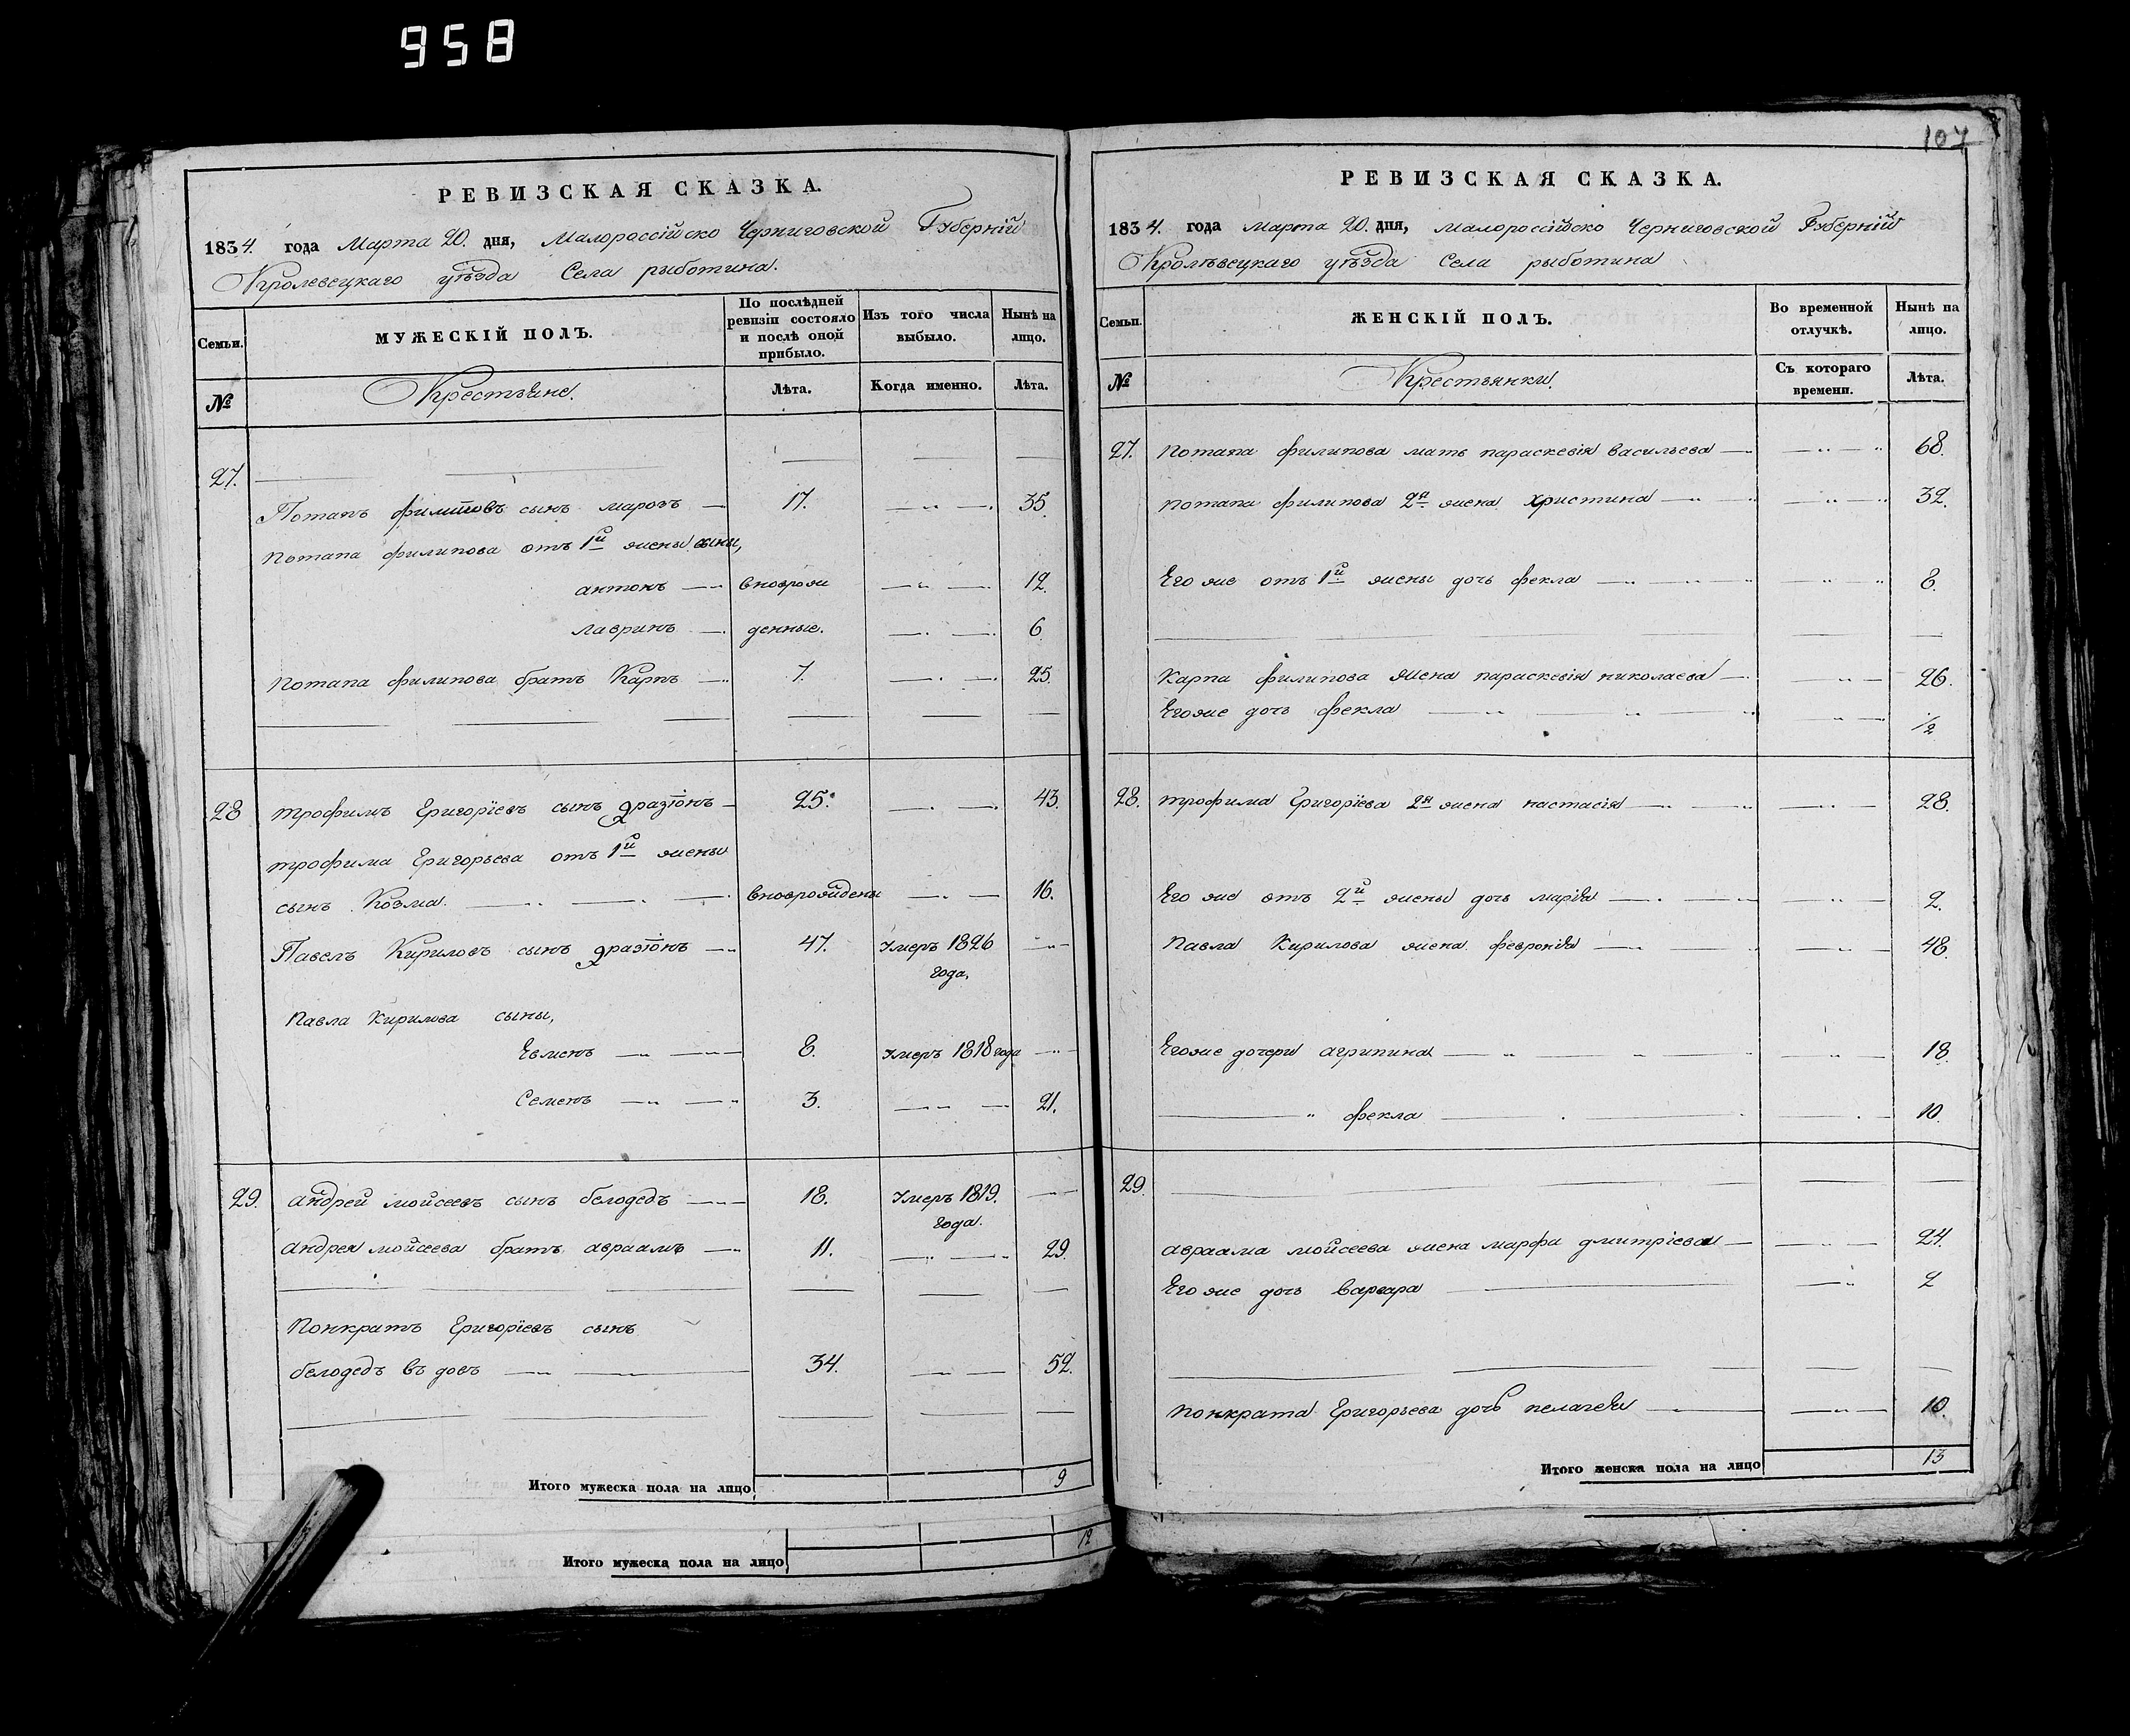 958
РЕВИЗСКАЯ СКАЗКА.
1834. года Марта 20. дня, Малороссійско Черниговской Губерніи
Кролевецкаго уѣзда Села рыботина.
Семьи.
МУЖЕСКІЙ ПОЛЪ.
По послѣдней ревизіи состояло и послѣ оной прибыло.
Изъ того числа выбыло.
Нынѣ на лицо.
№
Крестьяне.
Лѣта.
Когда именно.
Лѣта.
27.
Потапъ филиповъ сынъ марозъ 17. 35
Потапа филипова отъ 1й жены сыны,
антонъ вноврож 12.
лавринъ денные. 6
Потапа филипова братъ Карпъ 7. 25
28 трофимъ Григоріевъ сынъ 25. 43.
трофима Григорьева отъ 1й жены
сынъ Козма. вноврожденъ 16.
Павелъ Кириловъ сынъ 47. Умеръ 1826
года,
Павла Кирилова сыны,
Евменъ 8. Умеръ 1818 года
Семенъ 3. 21.
29. андрей мойсеевъ сынъ белодедъ 18. Умеръ 1819.
года.
андрея мойсеева братъ авраамъ 11. 29
Понкратъ Григоріевъ сынъ
белодедъ въ довъ 34. 52.
Итого мужеска пола на лицо 9
Итого мужеска пола на лицо 12
107
РЕВИЗСКАЯ СКАЗКА.
1834. года марта 20. дня, малороссійско Черниговской Губерніи
Кролѣвецкаго уѣзда Села рыботина
Семьи.
ЖЕНСКІЙ ПОЛЪ.
Во временной отлучкѣ.
Нынѣ на лицо.
№
Крестьянки.
Съ котораго времени.
Лѣта.
27. Потапа филипова мать параскевія васильева 68.
Потапа филипова 2я жена христина 32.
Его же отъ 1й жены дочь фекла 8.
Карпа филипова жена параскевія николаева 26.
Егоже дочь фекла 1/2
28. трофима Григоріева 2я жена настасія 28.
Его же отъ 2й жены дочь марія 2.
Павла Кирилова жена февронія 48.
Егоже дочери агрипина 18.
фекла 10.
29.
авраама мойсеева жена марфа дмитріева 24.
Его же дочь варвара 2
Понкрата Григорьева дочь пелагея 10.
Итого женска пола на лицо 13